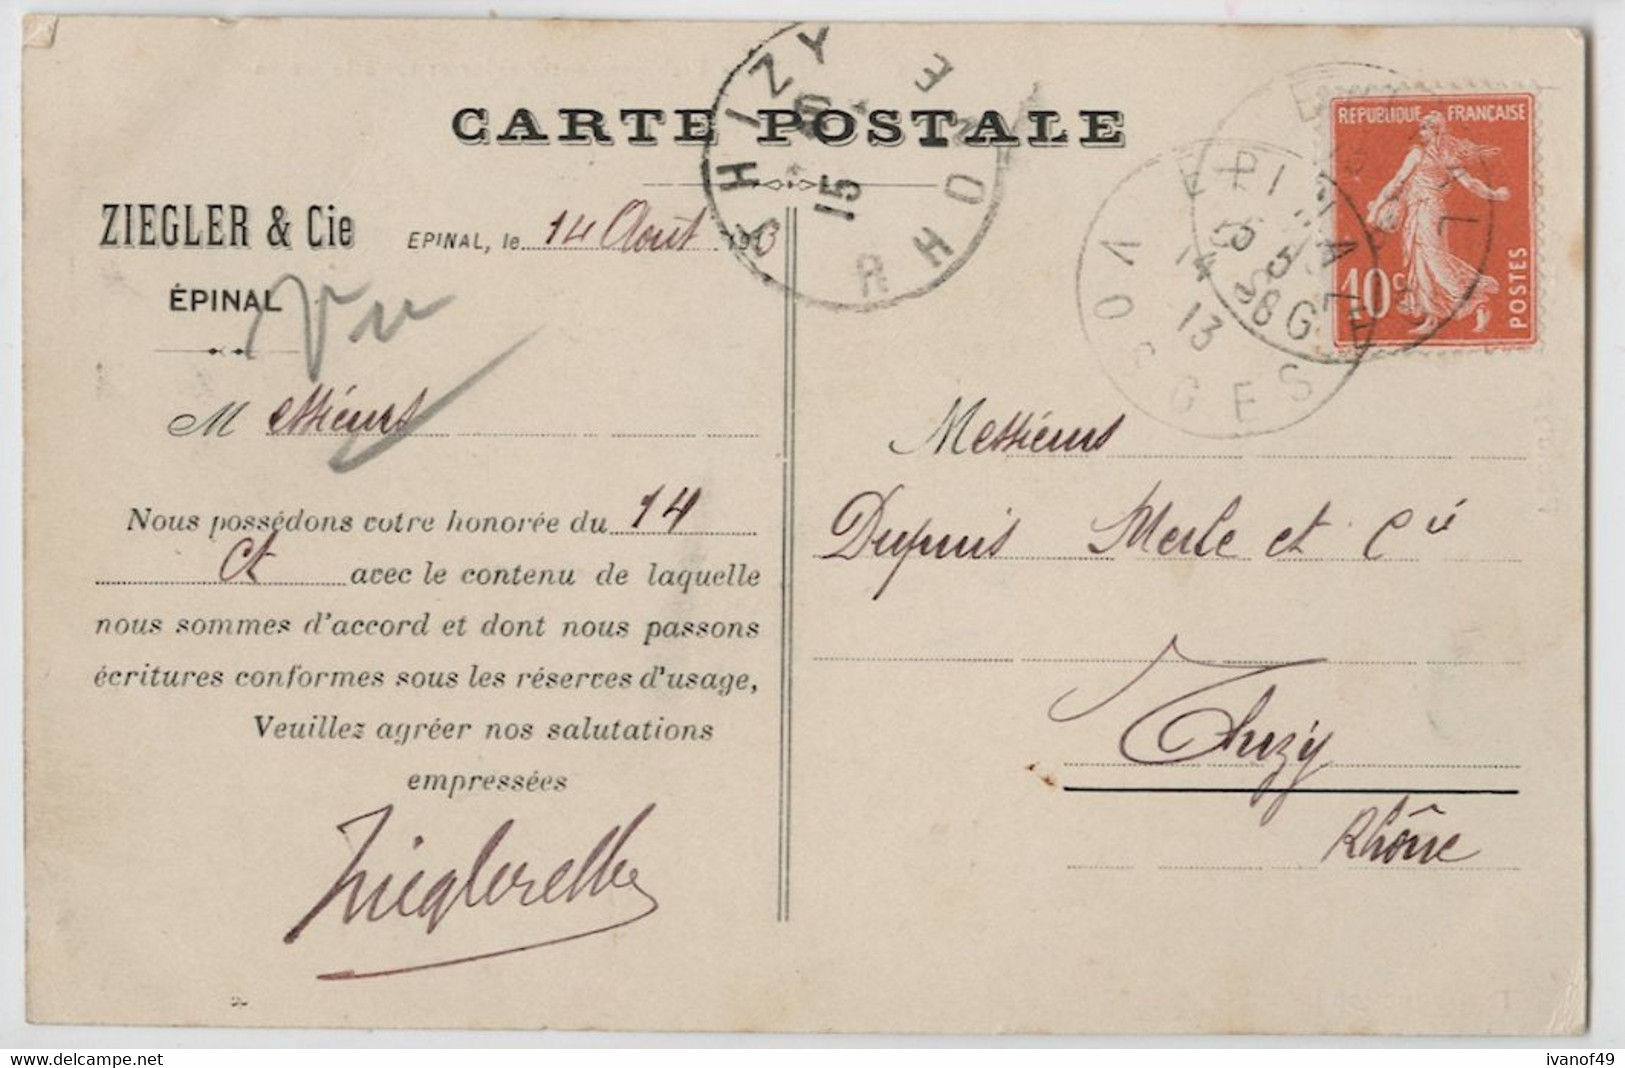 CARTE POSTALE
ZIEGLER & Cie
ÉPINAL
EPINAL, le 14 Août 1913
Vu
Messieurs
Nous possédons votre honorée du 14
ct avec le contenu de laquelle
nous sommes d'accord et dont nous passons
écritures conformes sous les réserves d'usage,
Veuillez agréer nos salutations
empressées
THIZY
15
RHONE
EPINAL
14
13
VOSGES
REPUBLIQUE FRANÇAISE
10 c
POSTES
Messieurs
Dupuis Merle et Cie
Thizy
Rhône
www.delcampe.net
ivanof49